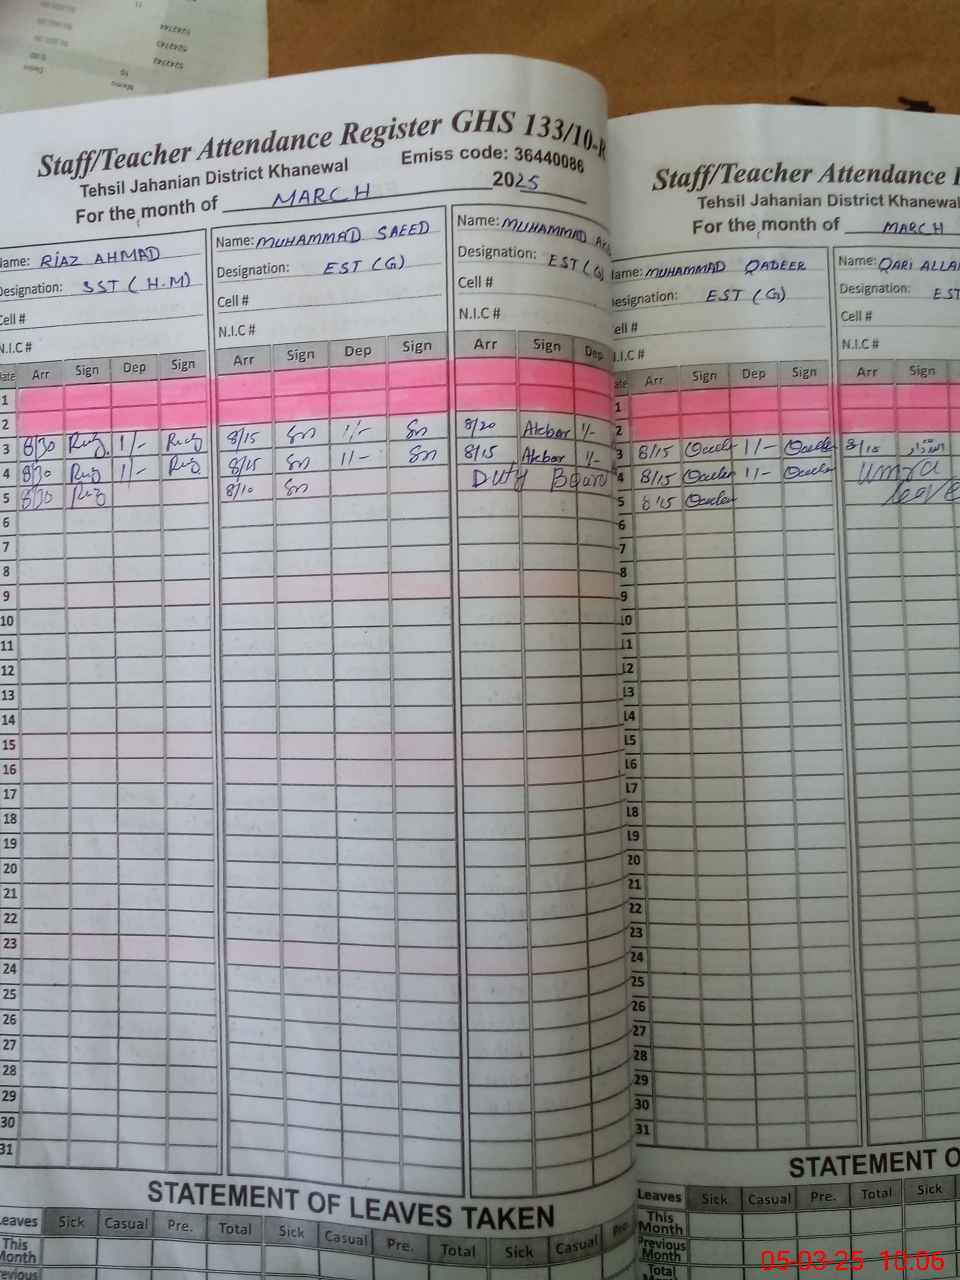 Staff/Teacher Attendance Register GHS 133/10-R
Tehsil Jahanian District Khanewal Emiss code: 36440086
For the month of MARCH 2025
Name: RIAZ AHMAD
Designation: SST (H.M)
Cell #
N.I.C #
Name: MUHAMMAD SAEED
Designation: EST (G)
Cell #
N.I.C #
Name: MUHAMMAD
Designation: EST (G)
Cell #
N.I.C #
Date Arr Sign Dep Sign Arr Sign Dep Sign Arr Sign Dep
1
2
3 8/30 1/- 8/15 1/- 8/20 Akbar 1/-
4 8/30 1/- 8/15 11- 8/15 Akbar 1/-
5 8/30 8/10 Duty Board
6
7
8
9
10
11
12
13
14
15
16
17
18
19
20
21
22
23
24
25
26
27
28
29
30
31
STATEMENT OF LEAVES TAKEN
Leaves Sick Casual Pre. Total Sick Casual Pre. Total Sick Casual Pre.
This Month
Previous
Staff/Teacher Attendance
Tehsil Jahanian District Khanewal
For the month of MARCH
Name: MUHAMMAD QADEER
Designation: EST (G)
Cell #
N.I.C #
Name: QARI
Designation: EST
Cell #
N.I.C #
Date Arr Sign Dep Sign Arr Sign
1
2
3 8/15 Qadeer 11- Qadeer 8/15
4 8/15 Qadeer 11- Qadeer Umra
5 8/15 Qadeer leave
6
7
8
9
10
11
12
13
14
15
16
17
18
19
20
21
22
23
24
25
26
27
28
29
30
31
STATEMENT O
Leaves Sick Casual Pre. Total Sick
This Month
Previous Month
Total
05-03-25 10:06